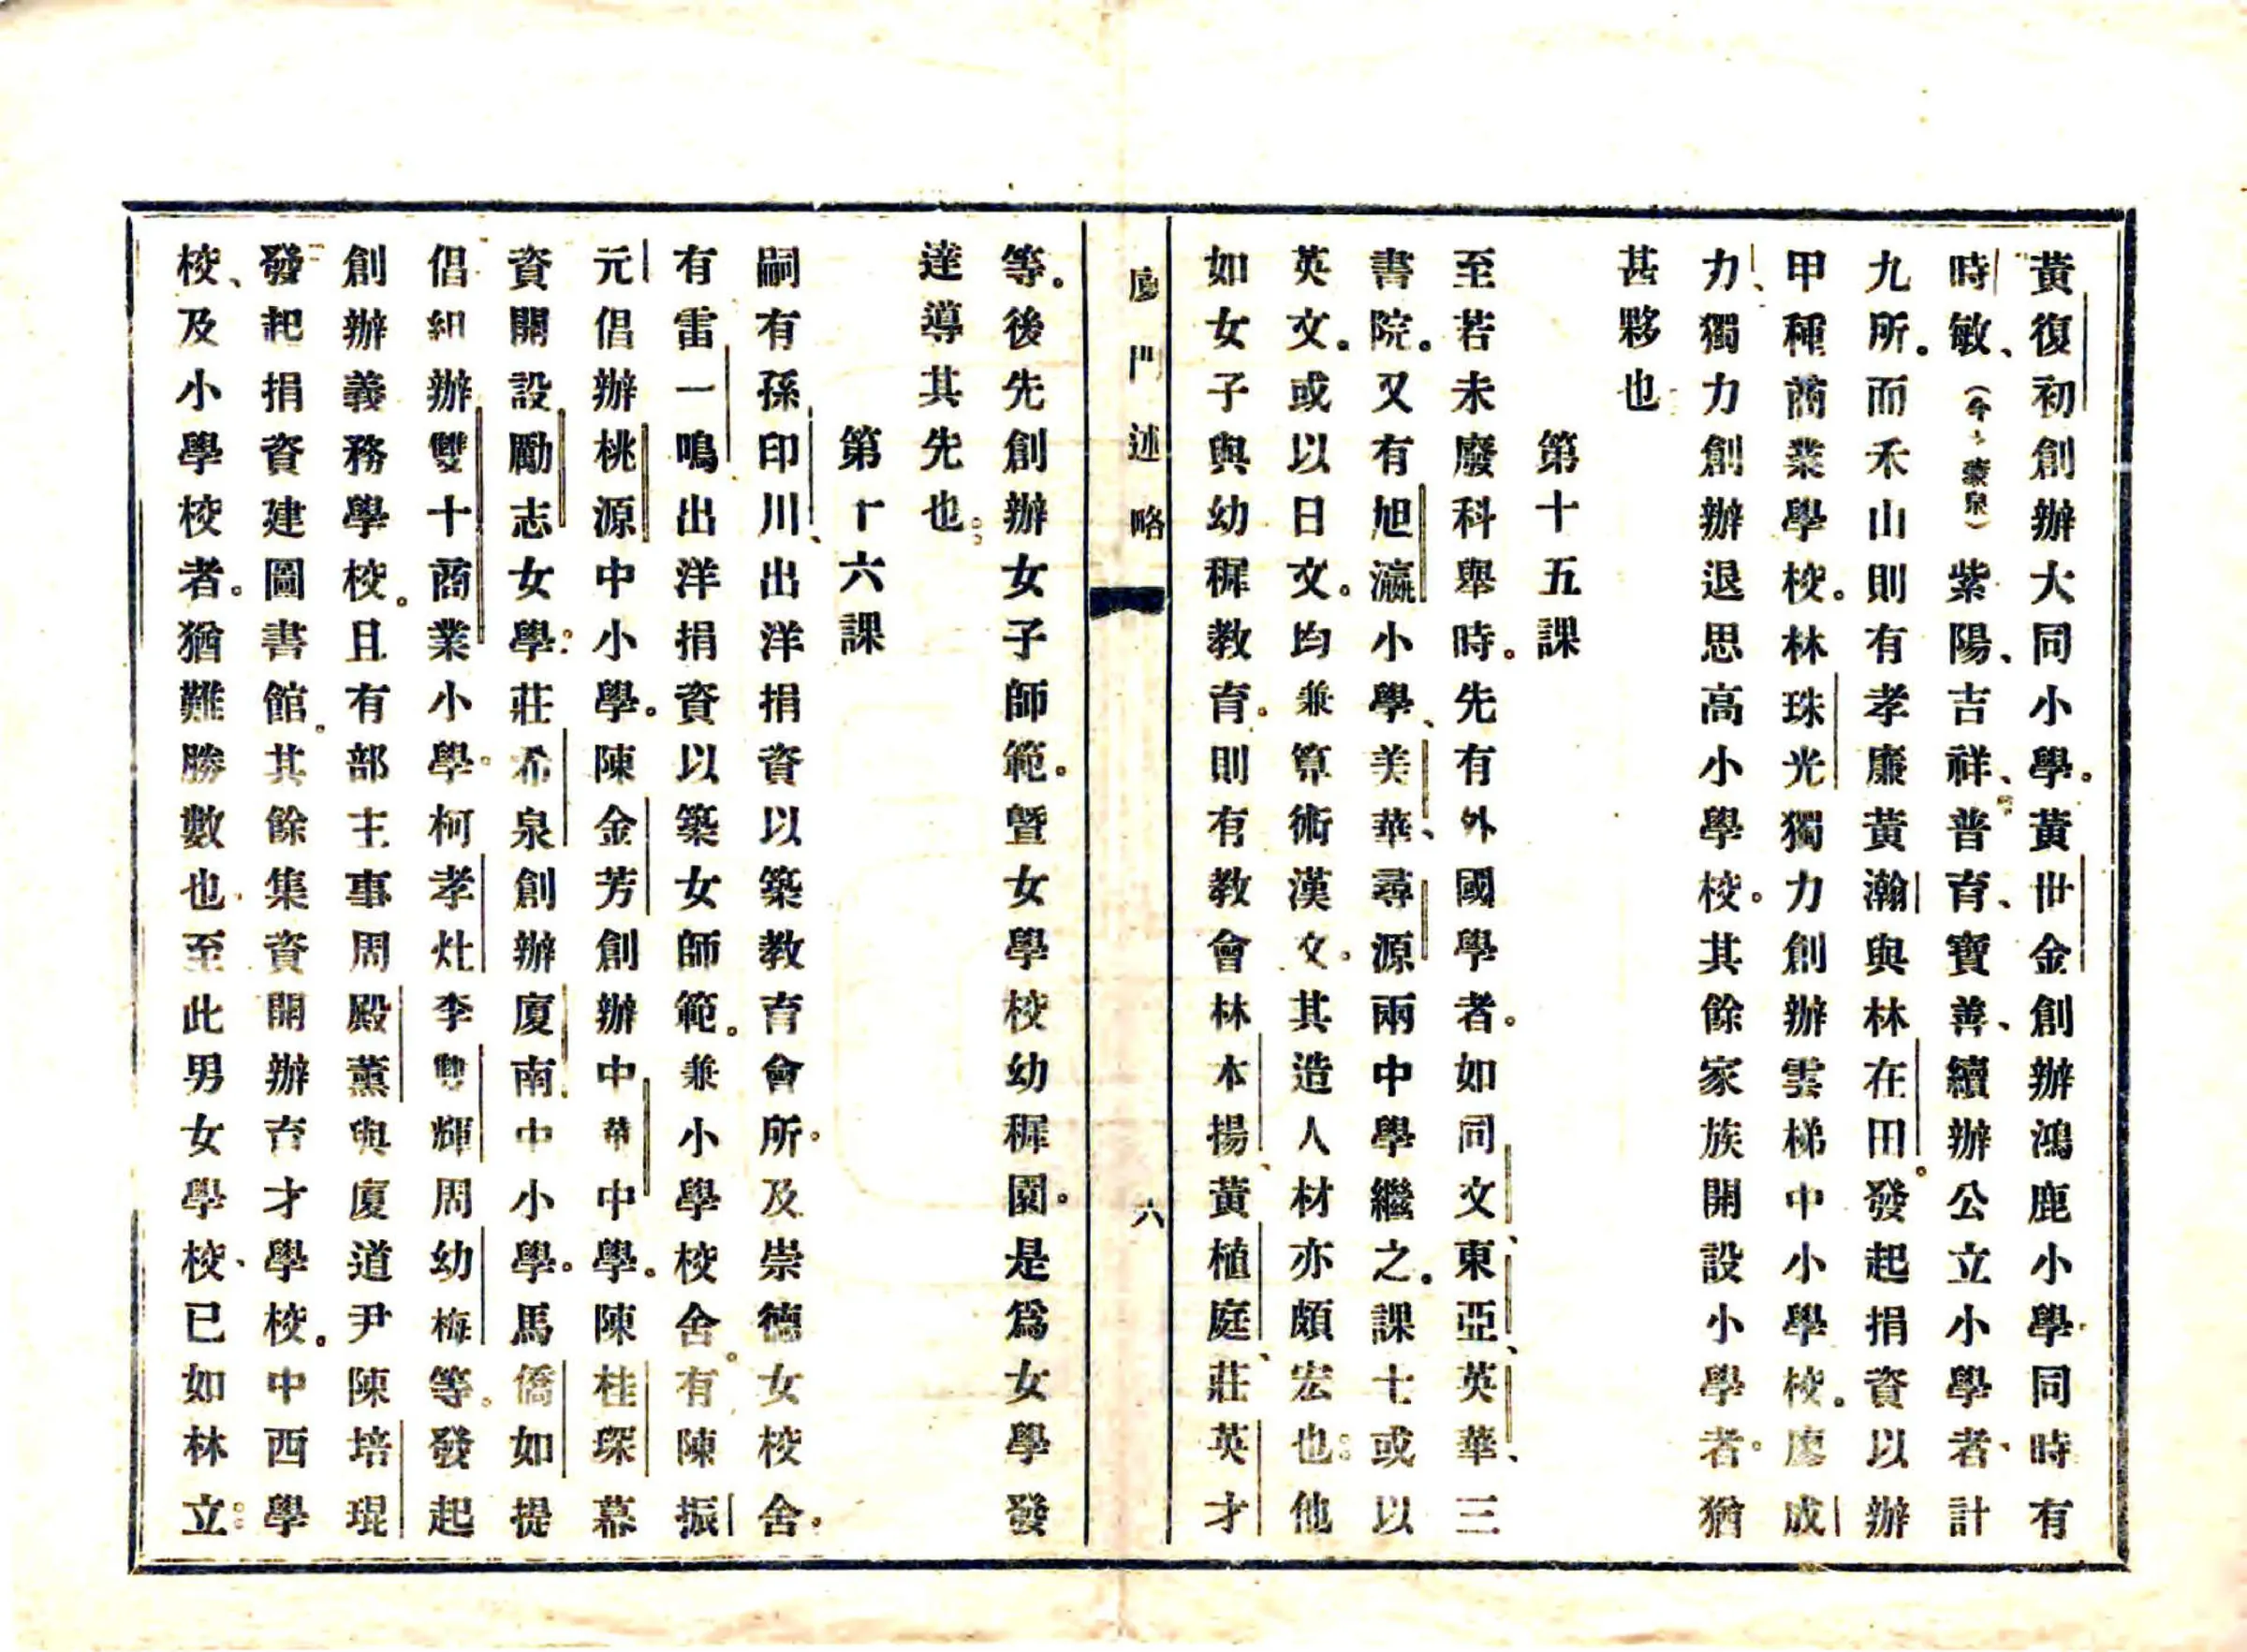 黃復初創辦大同小學。黃世金創辦鴻鹿小學。同時有
時敏、（今蒙泉）紫陽、吉祥、普育、寶善、續辦公立小學者、計
九所。而禾山則有孝廉黃瀚與林在田。發起捐資以辦
甲種商業學校。林珠光獨力創辦雲梯中小學校。廖成
力、獨力創辦退思高小學校。其餘家族開設小學者。猶
甚夥也
第十五課
至若未廢科舉時。先有外國學者。如同文、東亞、英華、三
書院。又有旭瀛小學、美華、尋源兩中學繼之。課七或以
英文。或以日文。均兼算術漢文。其造人材亦頗宏也。他
如女子與幼穉教育。則有教會林本揚、黃植庭、莊英才
廈門述略
六
等。後先創辦女子師範。曁女學校幼穉園。是爲女學發
達導其先也。
第十六課
嗣有孫印川、出洋捐資以築教育會所。及崇德女校舍。
有雷一鳴出洋捐資以築女師範。兼小學校舍。有陳振
元倡辦桃源中小學。陳金芳創辦中華中學。陳桂琛募
資開設勵志女學。莊希泉創辦廈南中小學。馬僑如提
倡組辦雙十商業小學。柯孝灶李雙輝周幼梅等。發起
創辦義務學校。且有部主事周殿薰與廈道尹陳培琨
發起捐資建圖書館。其餘集資開辦育才學校。中西學
校、及小學校者。猶難勝數也。至此男女學校、已如林立。